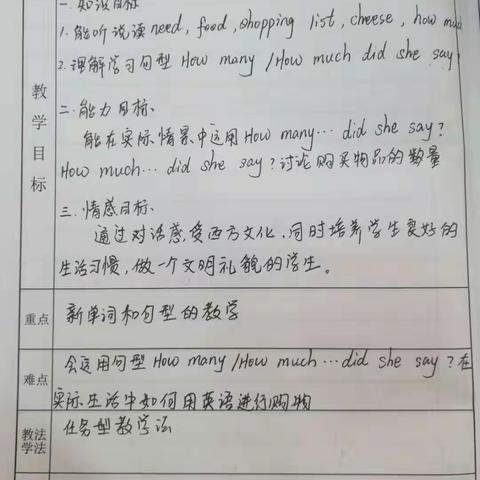 一. 知识目标
1. 能听说读need, food, shopping list, cheese, how much
2. 理解学习句型 How many / How much did she say
教学目标
二. 能力目标.
能在实际情景中运用How many… did she say?
How much… did she say?讨论购买物品的数量
三. 情感目标.
通过对话感受西方文化,同时培养学生良好的
生活习惯,做一个文明礼貌的学生。
重点
新单词和句型的教学
难点
会运用句型How many/How much…did she say?在
实际生活中如何用英语进行购物
教法
学法
任务型教学法